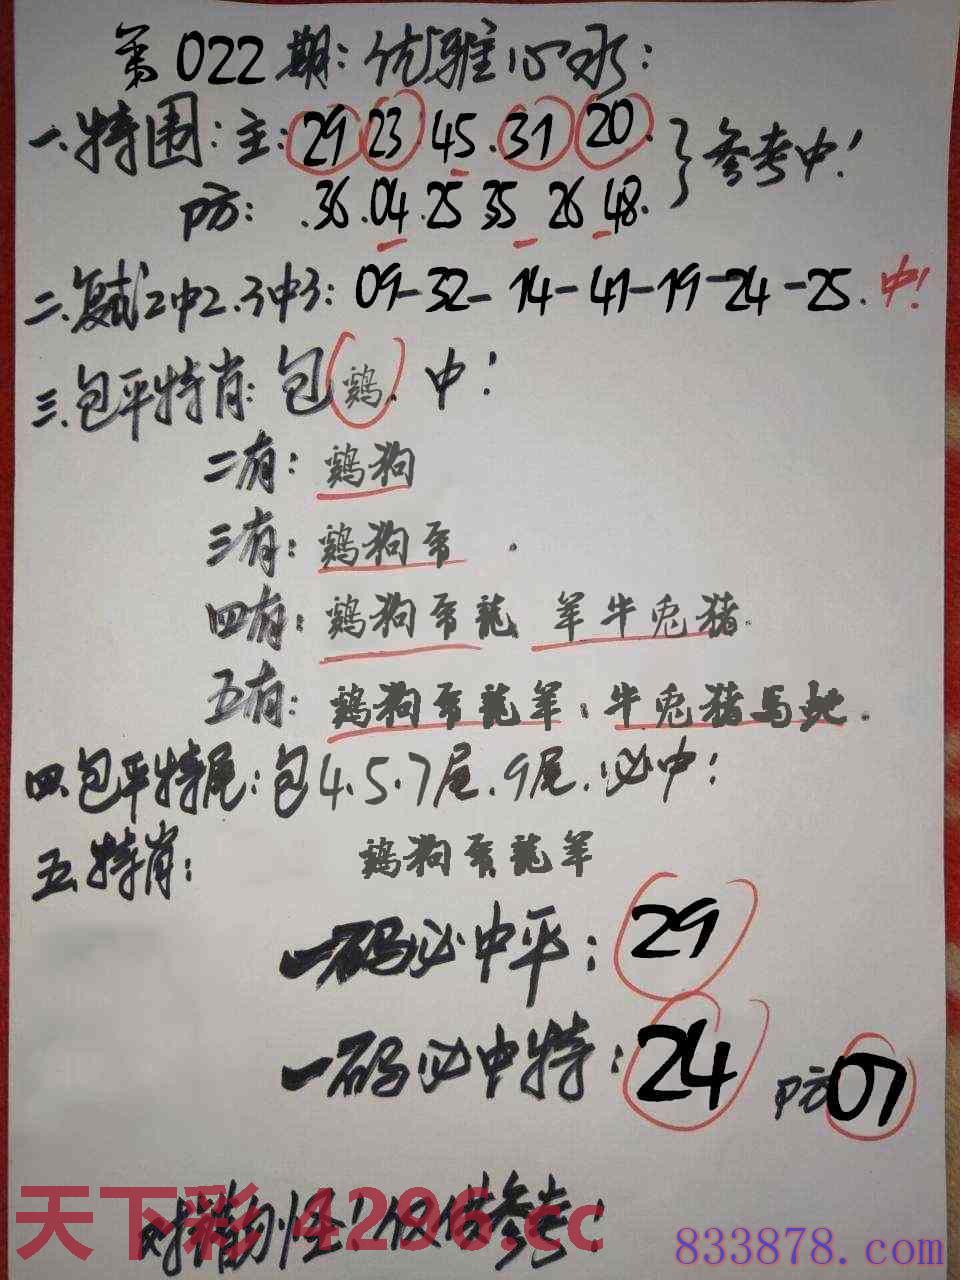 第022期:优雅心水:
一.特围:主:29 23.45.31 20.}参考中!
防:.36.04.25 35 26 48.
二.复试2中2.3中3:09-32-14-41-19-24-25.中!
三.包平特肖:包鸡.中!
二有:鸡狗
三有:鸡狗
四有:鸡狗 龍 羊牛兎猪.
五有:鸡狗 龍羊.牛兎猪馬蛇.
四.包平特尾:包4.5.7尾.9尾.必中!
五.特肖:鸡狗 龍羊
一码必中平:29
一码必中特:24 防07
天下彩 4296.cc
仅供参考!
833878.com